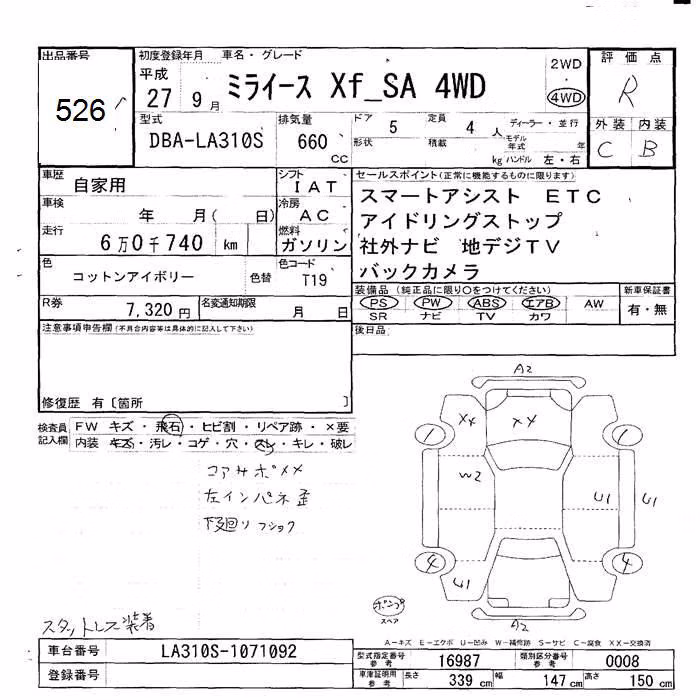 出品番号
526
初度登録年月 車名・グレード
平成
27 9月 ミライース Xf_SA 4WD
2WD
4WD
評価点
R
外装 内装
C B
型式 排気量 ドア 定員 ディーラー・並行
DBA-LA310S 660 CC 5 4 人
形状 積載 kg モデル年式 年
ハンドル 左・右
車歴 自家用
シフト IAT
車検 年 月( 日)
冷房 AC
走行 6万0千740 km
燃料 ガソリン
色 コットンアイボリー 色替
色コード T19
R券 7,320円 名変通知期限 月 日
セールスポイント(正常に機能するものに限ります)
スマートアシスト ETC
アイドリングストップ
社外ナビ 地デジTV
バックカメラ
装備品(純正品に限り○をつけてください) 新車保証書
PS PW ABS エアB AW 有・無
SR ナビ TV カワ
後日品
注意事項申告欄(不具合内容等は具体的に記入して下さい)
修復歴 有〔箇所 〕
検査員記入欄
FW キズ・飛石・ヒビ割・リペア跡・×要
内装 キズ・汚レ・コゲ・穴・スレ・キレ・破レ
コアサポメメ
左インパネ歪
下廻りフショク
スタットレス装着
A2
XX XX
1 1
W2
U1 U1
4 4
U1
A2
スペア
A-キズ E-エクボ U-凹み W-補修跡 S-サビ C-腐食 XX-交換済
車台番号 LA310S-1071092
登録番号
型式指定番号 参考 16987 類別区分番号 参考 0008
車庫証明用 参考 長さ 339 cm 幅 147 cm 高さ 150 cm